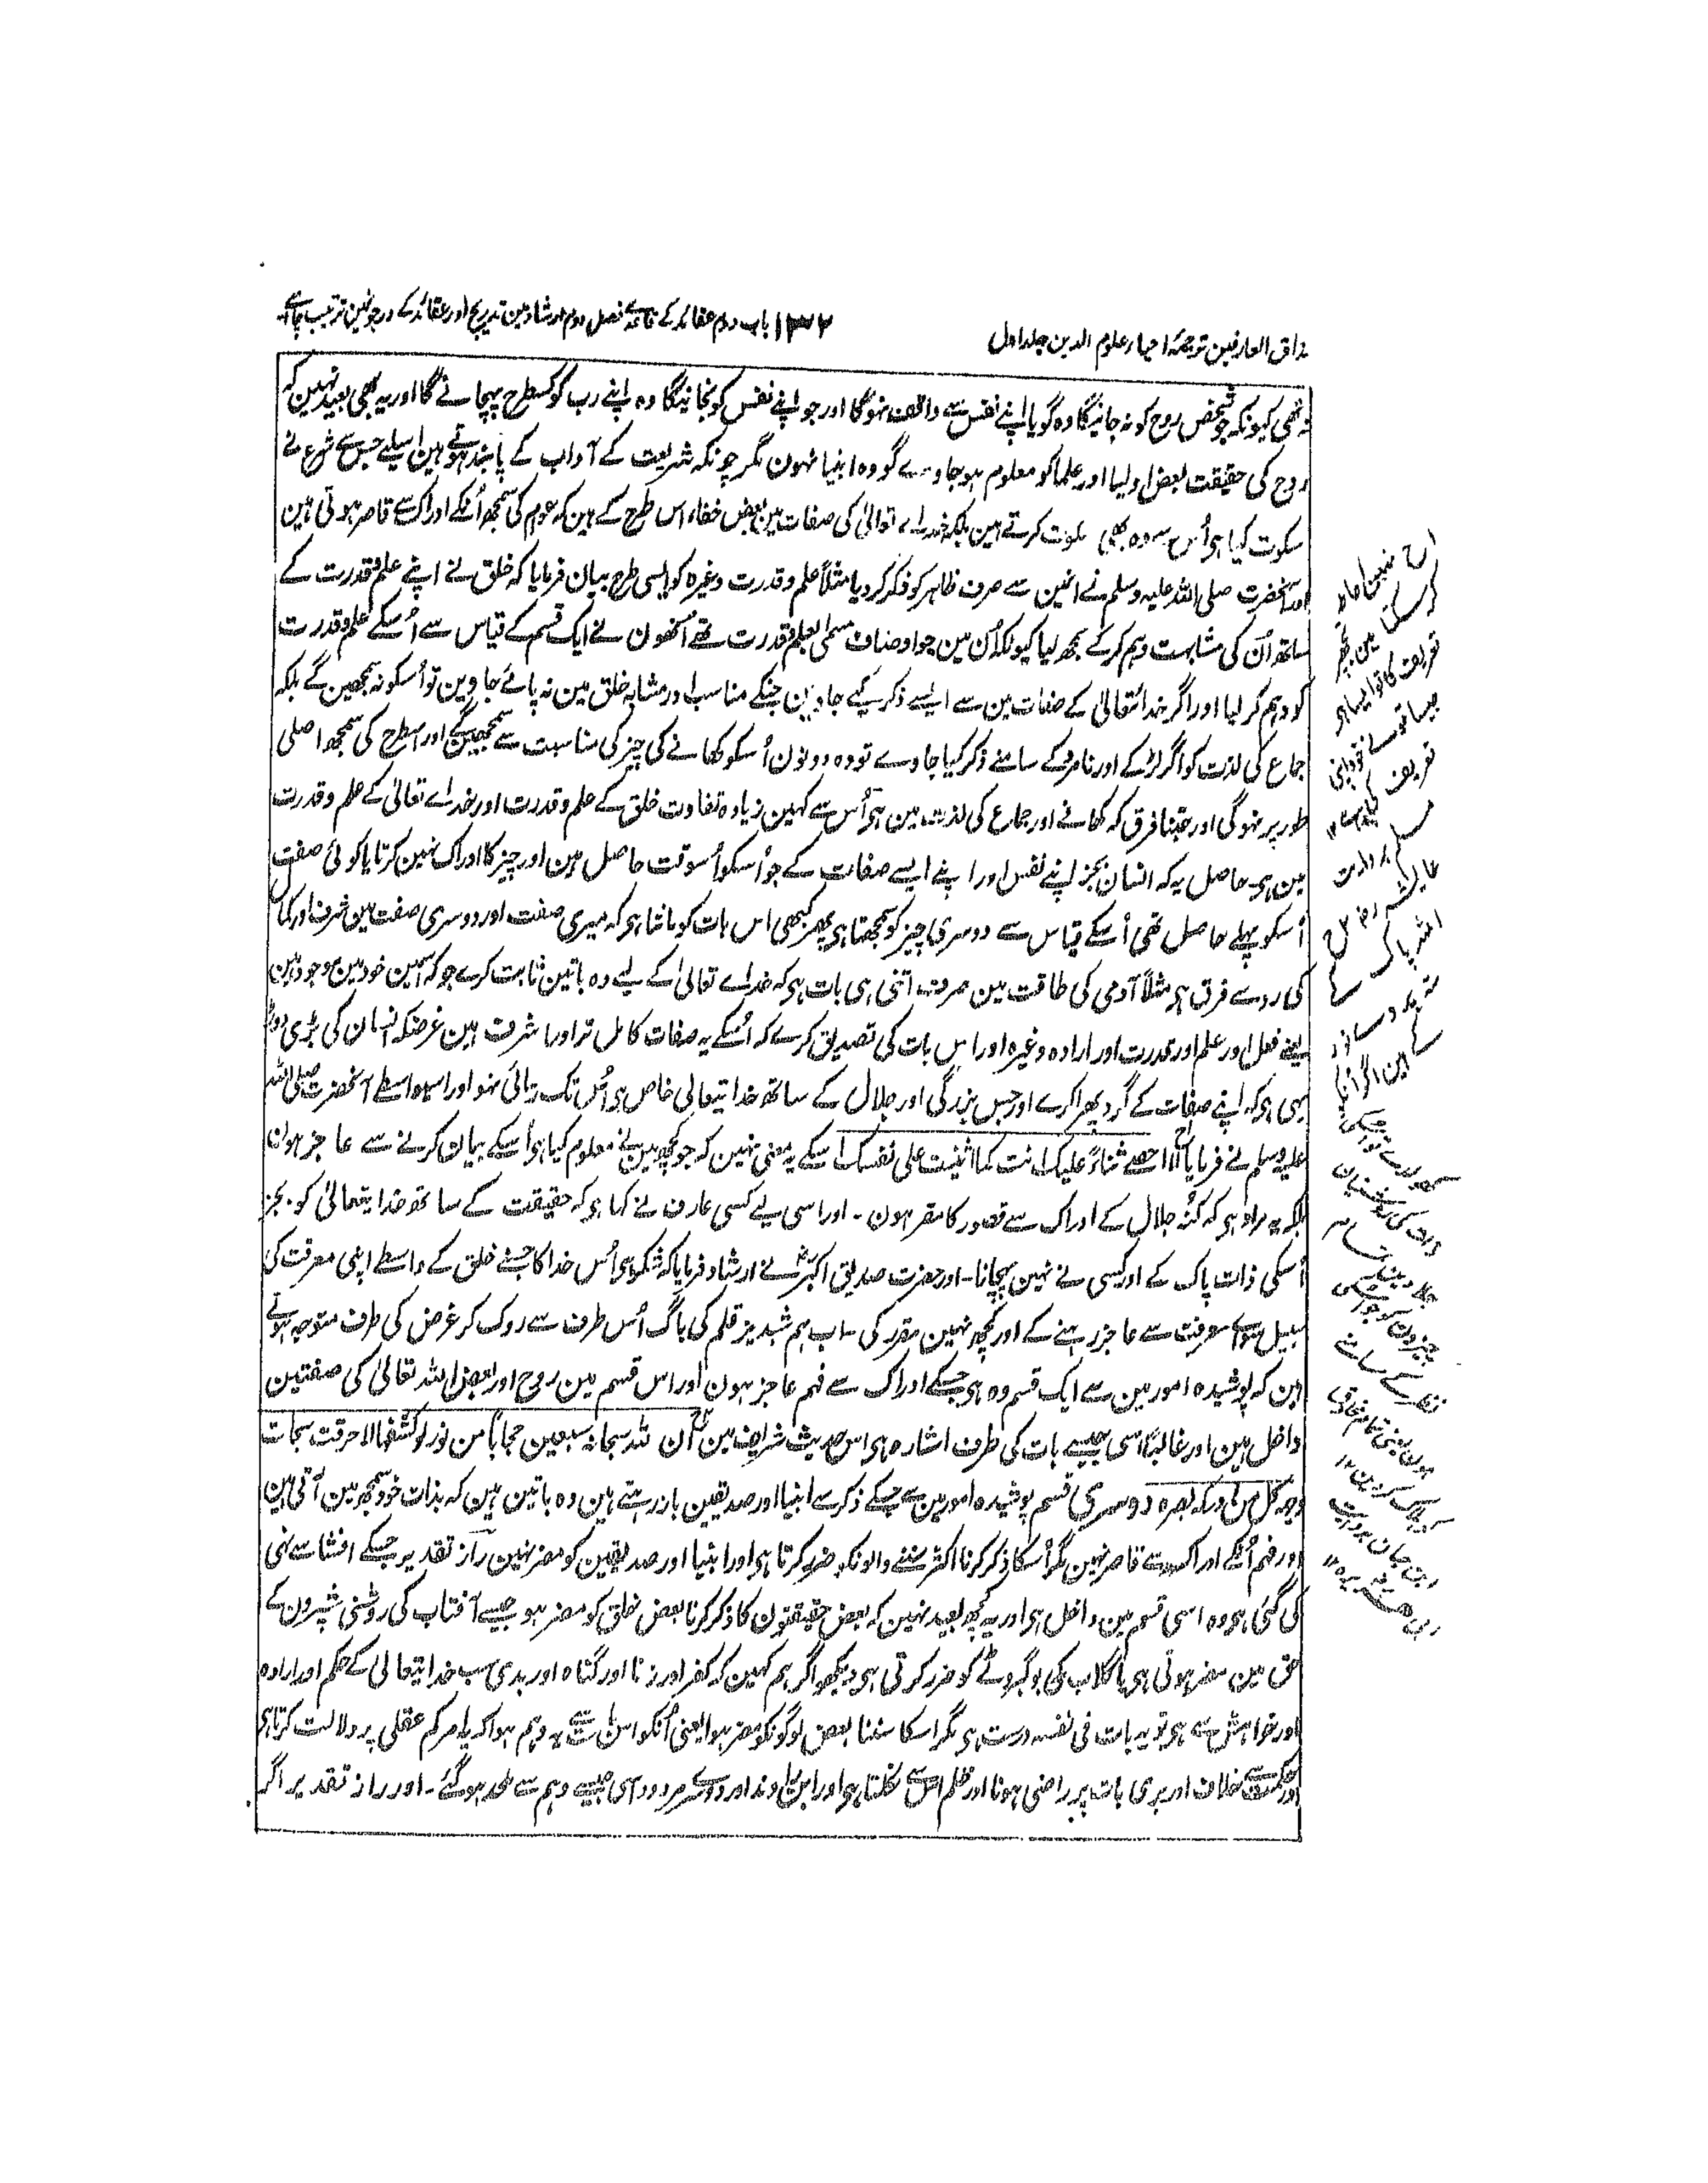 مذاق العارفین ترجمۂ احیاء علوم الدین جلد اول
۱۳۲
باب دوم عقائد کے قاعدے فصل دوم ارشاد مین تدریج اور عقائد کے درجونمین ترتیب چاہیے
نہ تھی کیونکہ جو شخص روح کو نہ جانیگا وہ گویا اپنے نفس سے واقف نہوگا اور جو اپنے نفس کو نجانیگا وہ اپنے رب کو کسطرح پہچانے گا اور یہ بھی بعید نہین کہ
روح کی حقیقت بعض اولیا اور علما کو معلوم ہوجاوے گو وہ انبیا نہون مگر چونکہ شریعت کے آداب کے پابند ہوتے ہین اسلیے جس سے شرع نے
سکوت کیا ہی اُس سے وہ بھی سکوت کرتے ہین بلکہ خداے تعالیٰ کی صفات مین بعض خفاء اس طرح کے ہین کہ عوام کی سمجھ اُنکے ادراک سے قاصر ہوتی ہین
اور آنحضرت صلی اللہ علیہ وسلم نے انمین سے صرف ظاہر کو ذکر کردیا مثلاً علم و قدرت وغیرہ کو ایسی طرح بیان فرمایا کہ خلق نے اپنے علم و قدرت کے
ساتھ اُن کی مشابہت وہم کرکے سمجھ لیا کیونکہ اُن مین جو اوصاف مسمی بعلم و قدرت تھے اُنھون نے ایک قسم کے قیاس سے اُسکے علم و قدرت
کو وہم کرلیا اور اگر خداتعالیٰ کے صفات مین سے ایسے ذکر کیے جاوین جنکے مناسب اور مشابہ خلق مین نہ پائے جاوین تو اُسکو نہ سمجھین گے بلکہ
جماع کی لذت کو اگر لڑکے اور نامرد کے سامنے ذکر کیا جاوے تو وہ دونون اُسکو کھانے کی چیز کی مناسبت سے سمجھینگے اور اسطرح کی سمجھ اصلی
طور پر نہوگی اور جتنا فرق کہ کھانے اور جماع کی لذت مین ہی اُس سے کہین زیادہ تفاوت خلق کے علم و قدرت اور خداے تعالیٰ کے علم و قدرت
مین ہی۔ حاصل یہ کہ انسان بجز اپنے نفس اور اپنے ایسے صفات کے جو اُسکو اُسوقت حاصل ہین اور چیز کا ادراک نہین کرتا یا کوئی صفت
اُسکو پہلے حاصل تھی اُسکے قیاس سے دوسری چیز کو سمجھتا ہی پھر کبھی اس بات کو مانتا ہی کہ میری صفت اور دوسری صفت مین شرف اور کمال
کی روسے فرق ہی مثلاً آدمی کی طاقت مین صرف اتنی ہی بات ہی کہ خداے تعالیٰ کے لیے وہ باتین ثابت کرے جو کہ اُسمین خود مین موجود ہین
یعنے فعل اور علم اور قدرت اور ارادہ وغیرہ اور اس بات کی تصدیق کرے کہ اُسکے یہ صفات کامل تر اور اشرف ہین غرضکہ انسان کی بڑی دوڑ
یہی ہی کہ اپنے صفات کے گرد پھرا کرے اور جس بزرگی اور جلال کے ساتھ خداتیعالی خاص ہی اُس تک رسائی نہو اور اسیواسطے آنحضرت صلی اللہ
علیہ وسلم نے فرمایا لا احصے ثناءً علیک انت کما اثنیت علی نفسک اسکے یہ معنی نہین کہ جو کچھ مین نے معلوم کیا ہی اُسکے بیان کرنے سے عاجز ہون
بلکہ یہ مراد ہی کہ کنہ جلال کے ادراک سے قصور کا مقر ہون۔ اور اسی لیے کسی عارف نے کہا ہی کہ حقیقت کے ساتھ خداتیعالیٰ کو بجز
اُسکی ذات پاک کے اور کیسی نے نہین پہچانا۔ اور حضرت صدیق اکبرؓ نے ارشاد فرمایا کہ شکر ہی اُس خدا کا جسنے خلق کے واسطے اپنی معرفت کی
سبیل سواے معرفت سے عاجز رہنے کے اور کچھ نہین مقرر کی۔ اب ہم شبدیز قلم کی باگ اُس طرف سے روک کر غرض کی طرف متوجہ ہوتے
ہین کہ پوشیدہ امور مین سے ایک قسم وہ ہی جسکے ادراک سے فہم عاجز ہون اور اس قسم مین روح اور بعض اللہ تعالیٰ کی صفتین
داخل ہین اور غالباً اسی جیسے بات کی طرف اشارہ ہی اس حدیث شریف مین ان للہ سبحانہ سبعین حجاباً من نور لو کشفہا لاحرقت سبحات
وجہہ کل من ادرکہ بصرہ دوسری قسم پوشیدہ امور مین سے جسکے ذکر سے انبیا اور صدیقین باز رہتے ہین وہ باتین ہین کہ بذات خود سمجھ مین آتی ہین
اور فہم اُنکے ادراک سے قاصر نہین مگر اُسکا ذکر کرنا اکثر سننے والونکو ضرر کرتا ہی اور انبیا اور صدیقین کو مضر نہین راز تقدیر جسکے افشا سے نہی
کی گئی ہی وہ اسی قسم مین داخل ہی اور یہ کچھ بعید نہین کہ بعض حقیقتون کا ذکر کرنا بعض خلق کو مضر ہو جیسے آفتاب کی روشنی شپرون کے
حق مین مضر ہوتی ہی یا گلاب کی بو گبروٹے کو ضرر کرتی ہی دیکھو اگر ہم کہین کہ کفر اور زنا اور گناہ اور بدی سب خداتیعالیٰ کے حکم اور ارادہ
اور خواہش سے ہی تو یہ بات فی نفسہ درست ہی مگر اسکا سننا بعض لوگونکو مضر ہوا یعنی اُنکو اس بات سے یہ وہم ہوا کہ یہ امر کم عقلی پر دلالت کرتا ہی
اور حکمت کے خلاف اور بری بات پر راضی ہونا اور ظلم اس سے نکلتا ہی اور ابن راوند اور دوسرے مردود اسی جیسے وہم سے ملحد ہوگئے۔ اور راز تقدیر اگر
تعریف کا تو ایسا ہی
جیسا تونے خود اپنی
تعریف